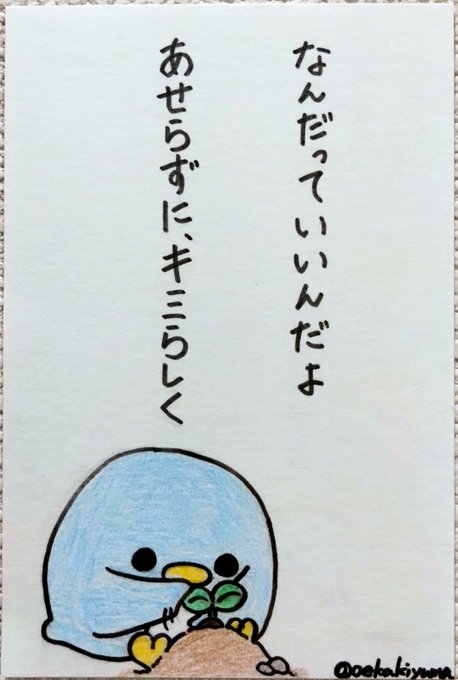 なんだっていいんだよ
あせらずに、キミらしく
@oekakiyuma